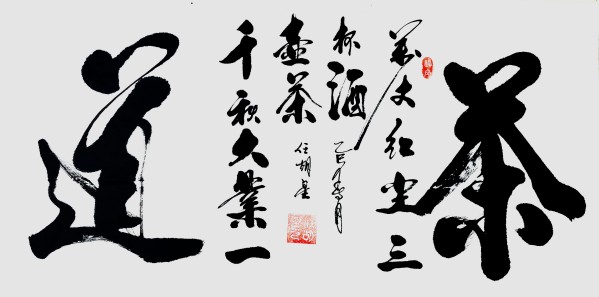 茶
道
萬丈红尘三
杯酒
千秋大業一
壺茶
乙巳年 月
任胡星